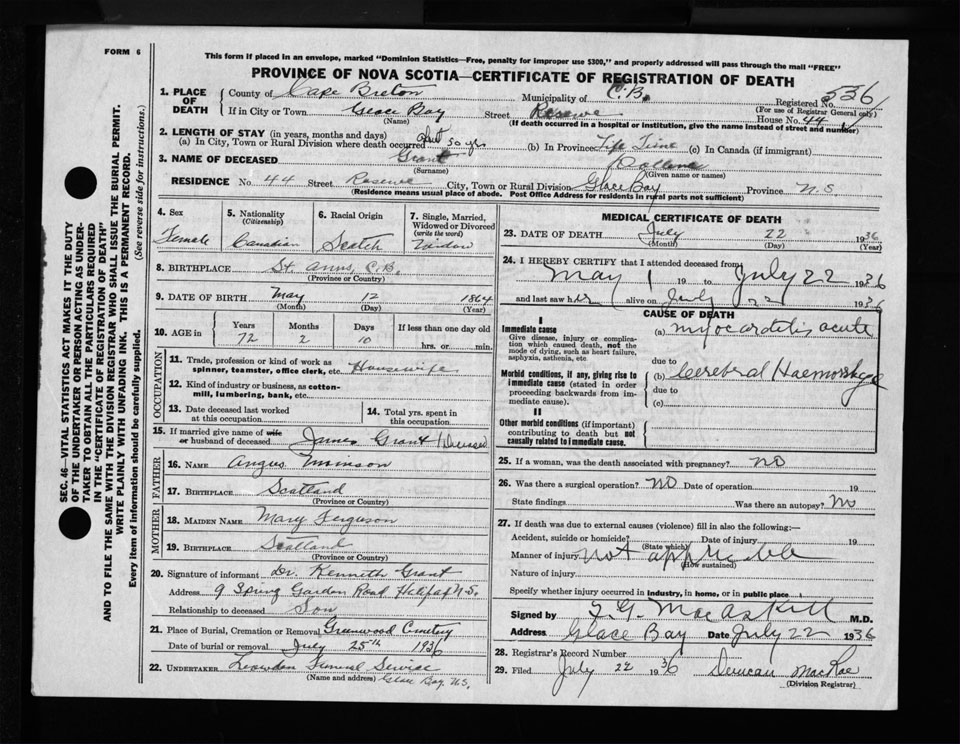 FORM 6
This form if placed in an envelope, marked "Dominion Statistics—Free, penalty for improper use $300," and properly addressed will pass through the mail "FREE"
PROVINCE OF NOVA SCOTIA—CERTIFICATE OF REGISTRATION OF DEATH
SEC. 46—VITAL STATISTICS ACT MAKES IT THE DUTY
OF THE UNDERTAKER OR PERSON ACTING AS UNDER-
TAKER TO OBTAIN ALL THE PARTICULARS REQUIRED
IN THE "CERTIFICATE OF REGISTRATION OF DEATH"
AND TO FILE THE SAME WITH THE DIVISION REGISTRAR WHO SHALL ISSUE THE BURIAL PERMIT.
WRITE PLAINLY WITH UNFADING INK. THIS IS A PERMANENT RECORD.
Every item of information should be carefully supplied. (See reverse side for instructions.)
1. PLACE OF DEATH County of Cape Breton Municipality of C.B. Registered No. 536
(For use of Registrar General only)
If in City or Town Glace Bay Street Reserve House No. 44
(Name) (If death occurred in a hospital or institution, give the name instead of street and number)
2. LENGTH OF STAY (in years, months and days)
(a) In City, Town or Rural Division where death occurred abt 50 yrs (b) In Province Life Time (c) In Canada (if immigrant)
3. NAME OF DECEASED Grant
(Surname) (Given name or names)
RESIDENCE No. 44 Street Reserve City, Town or Rural Division Glace Bay Province N.S
(Residence means usual place of abode. Post Office Address for residents in rural parts not sufficient)
4. Sex 5. Nationality (Citizenship) 6. Racial Origin 7. Single, Married, Widowed or Divorced (write the word)
Female Canadian Scotch Widow
8. BIRTHPLACE St. Anns, C.B.
(Province or Country)
9. DATE OF BIRTH May 12 1864
(Month) (Day) (Year)
10. AGE in Years Months Days If less than one day old
72 2 10 hrs. or min.
OCCUPATION
11. Trade, profession or kind of work as
spinner, teamster, office clerk, etc. Housewife
12. Kind of industry or business, as cotton-
mill, lumbering, bank, etc.
13. Date deceased last worked at this occupation
14. Total yrs. spent in this occupation
15. If married give name of wife
or husband of deceased. James Grant (Deceased
FATHER
16. NAME Angus
17. BIRTHPLACE Scotland
(Province or Country)
MOTHER
18. MAIDEN NAME Mary Ferguson
19. BIRTHPLACE Scotland
(Province or Country)
20. Signature of informant Dr. Kenneth Grant
Address 9 Spring Garden Road Halifax N.S.
Relationship to deceased Son
21. Place of Burial, Cremation or Removal Greenwood Cemetery
Date of burial or removal July 25th 1936
22. UNDERTAKER Funeral Service
(Name and address) Glace Bay N.S.
MEDICAL CERTIFICATE OF DEATH
23. DATE OF DEATH July 22 1936
(Month) (Day) (Year)
24. I HEREBY CERTIFY that I attended deceased from
May 1 19 to July 22 1936
and last saw her alive on July 22 1936
CAUSE OF DEATH
I
Immediate cause (a) myocarditis acute
Give disease, injury or complica-
tion which caused death, not the
mode of dying, such as heart failure,
asphyxia, asthenia, etc
due to
Morbid conditions, if any, giving rise to
immediate cause (stated in order
proceeding backwards from im-
mediate cause).
(b) Cerebral Haemorrhage
due to
(c)
II
Other morbid conditions (if important)
contributing to death but not
causally related to immediate cause.
25. If a woman, was the death associated with pregnancy? NO
26. Was there a surgical operation? NO Date of operation 19
State findings Was there an autopsy? No
27. If death was due to external causes (violence) fill in also the following:—
Accident, suicide or homicide? Date of injury 19
(State which)
Manner of injury not applicable
(How sustained)
Nature of injury
Specify whether injury occurred in industry, in home, or in public place
Signed by MacAskill M.D.
Address Glace Bay Date July 22 1936
28. Registrar's Record Number
29. Filed July 22 1936 Duncan MacRae
(Division Registrar)